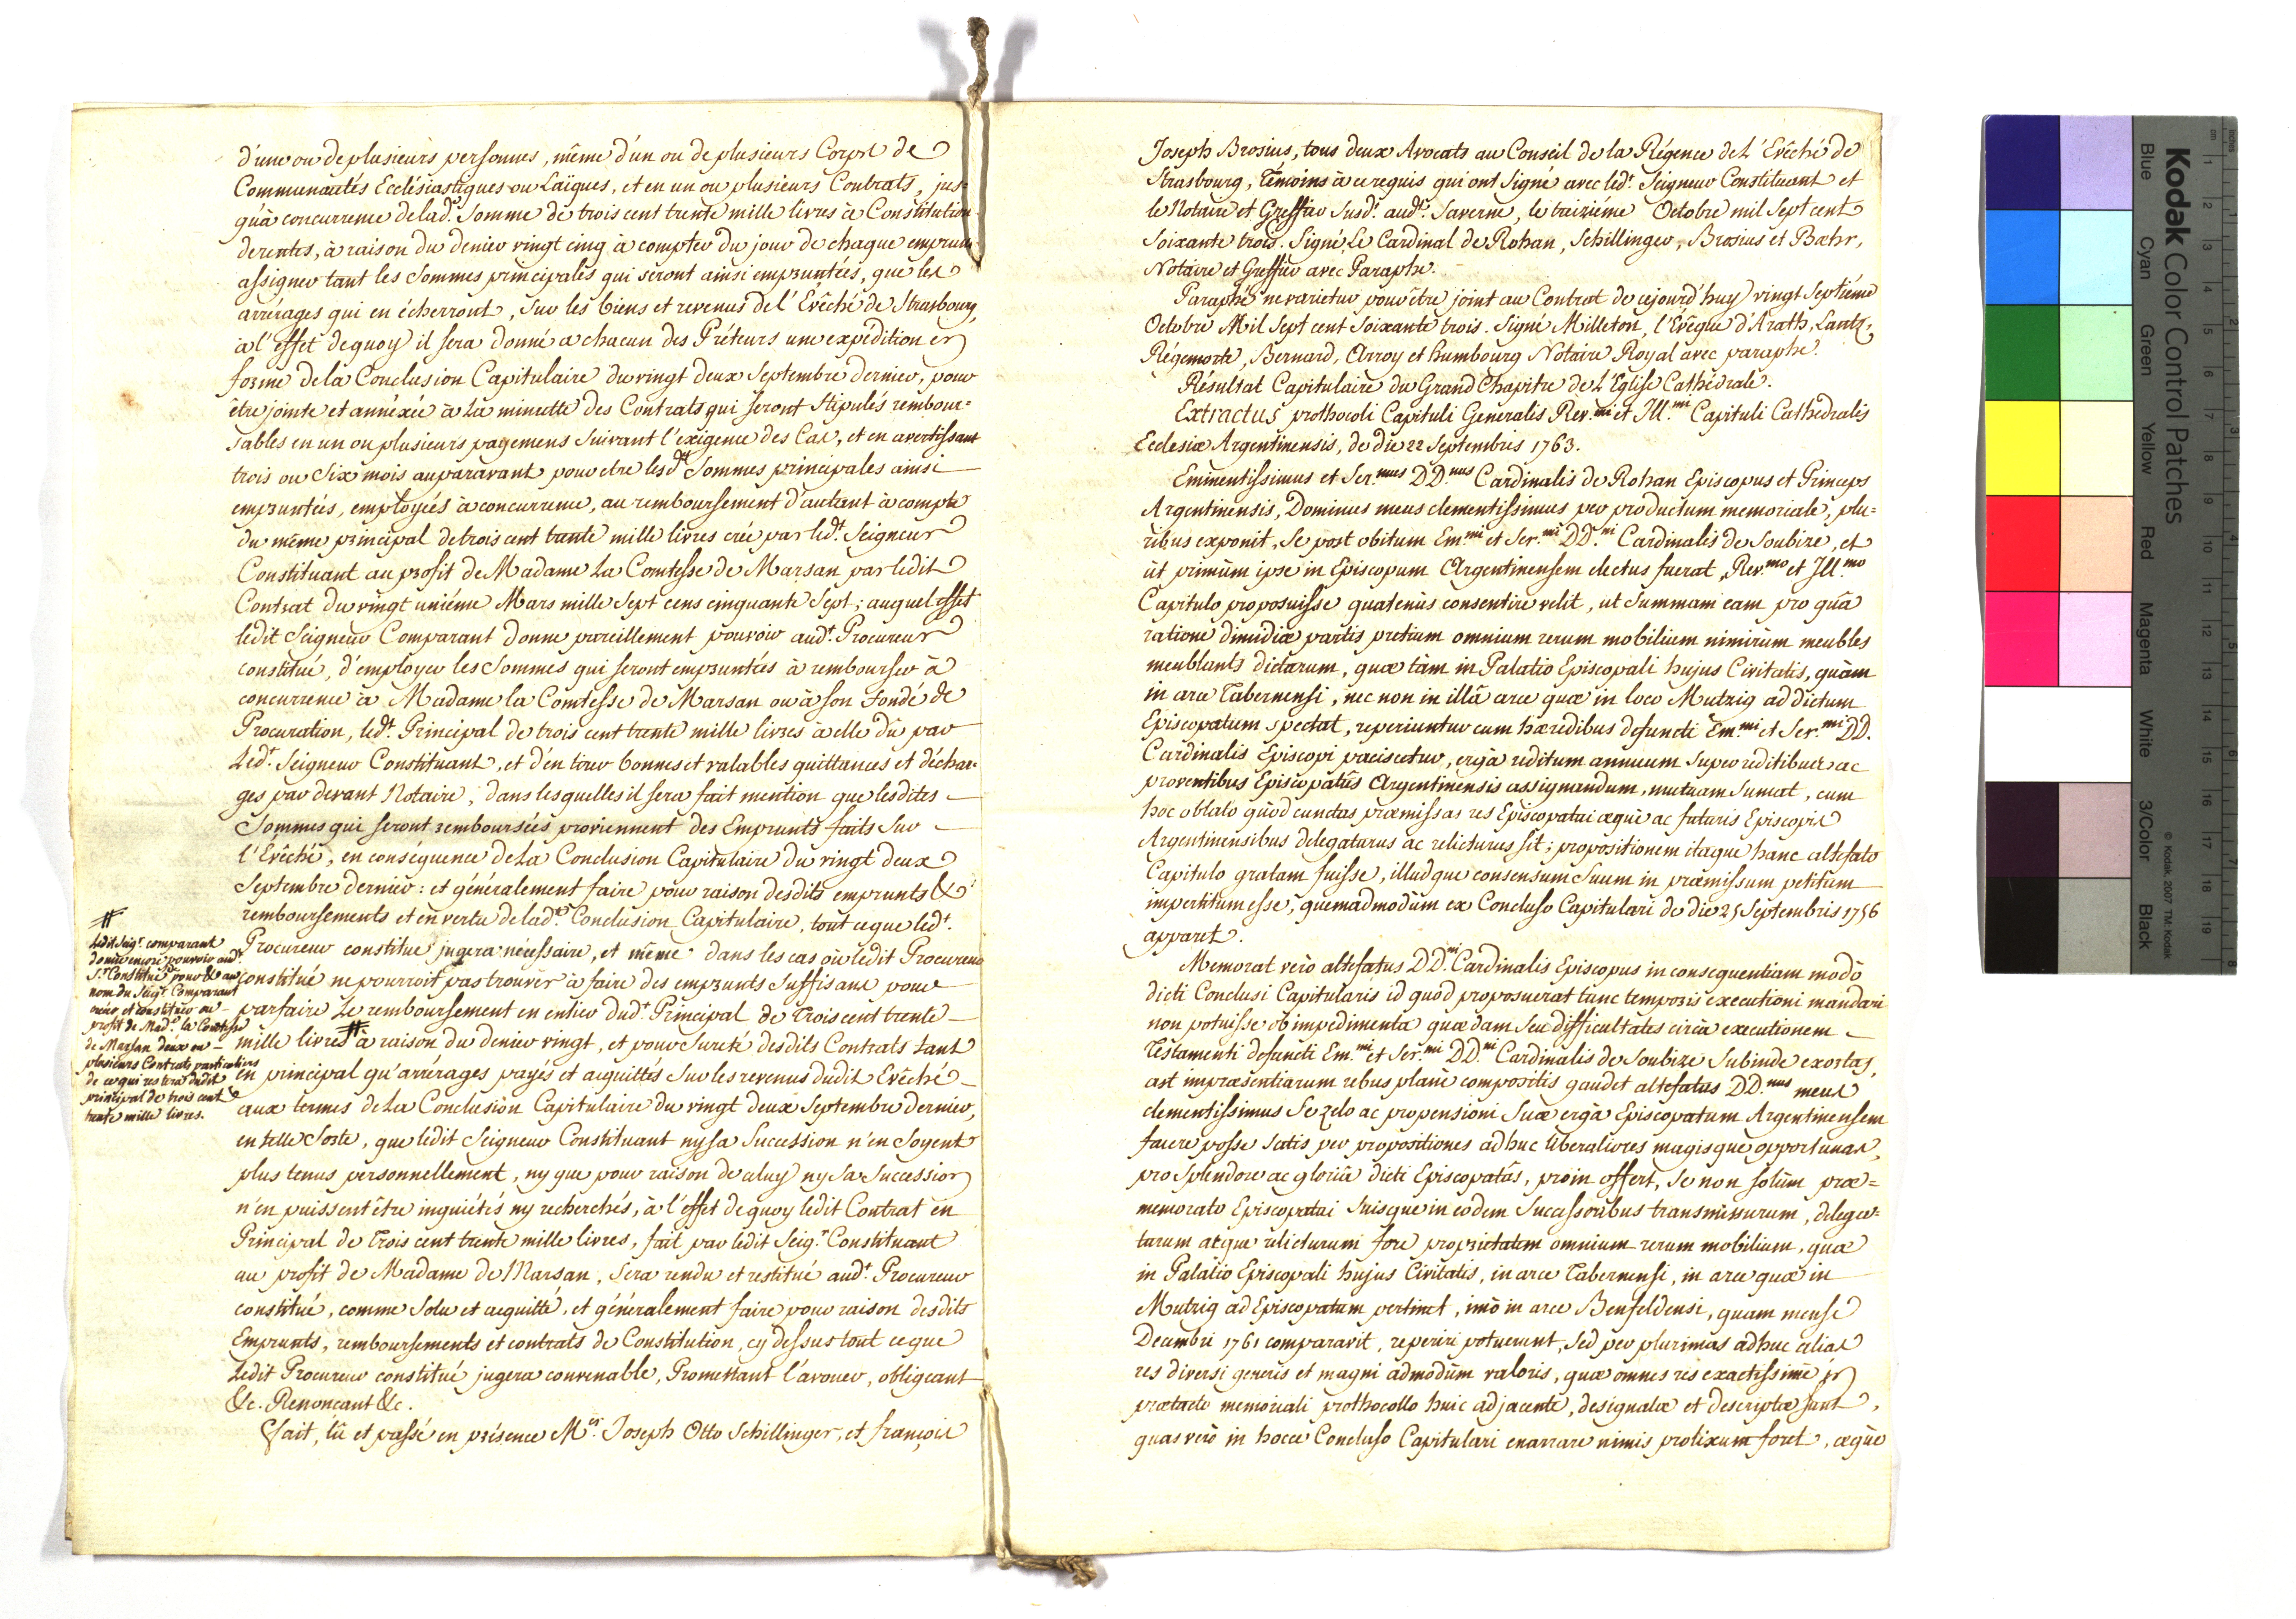 d'une ou de plusieurs personnes, même d'un ou de plusieurs Corps de
Communautés Ecclésiastiques ou Laïques, et en un ou plusieurs Contrats, jus-
qu'à concurrence de lad.e Somme de trois cent trente mille livres à Constitution
de rentes, à raison du denier vingt cinq à compter du jour de chaque emprunt
assigner tant les Sommes principales qui seront ainsi empruntées, que les
arrérages qui en écherront, sur les biens et revenus de l'Evêché de Strasbourg,
à l'effet de quoy il sera donné a chacun des Prêteurs une expédition en
forme de la Conclusion Capitulaire du vingt deux Septembre dernier, pour
être jointe et annéxée à la minutte des Contrats qui seront Stipulés rembour=
sables en un ou plusieurs payemens Suivant l'exigence des Cas, et en avertissant
trois ou Six mois auparavant pour etre lesd.tes Sommes principales ainsi
empruntées, employées à concurrence, au remboursement d'autant à compte
du même principal de trois cent trente mille livres créé par led.t Seigneur
Constituant au profit de Madame La Comtesse de Marsan par ledit
Contrat du vingt uniéme Mars mille Sept cens cinquante Sept; auquel effet
ledit Seigneur Comparant donne pareillement pouvoir aud.t Procureur
constitué, d'employer les Sommes qui seront empruntées à rembourser à
concurrence à Madame la Comtesse de Marsan ou à son Fondé de
Procuration, led.t Principal de trois cent trente mille livres à elle dû par
Led.t Seigneur Constituant, et d'en tirer bonnes et valables quittances et déchar-
ges par devant Notaire, dans lesquelles il sera fait mention que lesdites
Sommes qui seront remboursées proviennent des Emprunts faits Sur
l'Evêché, en conséquence de La Conclusion Capitulaire du vingt deux
Septembre dernier: et généralement faire pour raison desdits emprunts &
remboursements et en vertu de lad.te Conclusion Capitulaire, tout ce que led.t
Procureur constitué jugera nécessaire, et même dans les cas où ledit Procureur
constitué ne pourroit pas trouver à faire des emprunts Suffisans pour
parfaire Le remboursement en entier dud.t Principal de Trois cent trente
mille livres # à raison du denier vingt, et pour Sureté desdits Contrats tant
en principal qu'arrérages payés et acquittés Sur les revenus dudit Evêché
aux termes de La Conclusion Capitulaire du vingt deux Septembre dernier,
en telle Sorte, que ledit Seigneur Constituant ny sa Succession n'en Soyent
plus tenus personnellement, ny que pour raison de celuy ny Sa Succession
n'en puissent être inquiétés ny recherchés, à l'effet de quoy ledit Contrat en
Principal de Trois cent trente mille livres, fait par ledit Seig.r Constituant
au profit de Madame de Marsan, Sera rendu et restitué aud.t Procureur
constitué, comme Solu et acquitté, et généralement faire pour raison desdits
Emprunts, remboursements et contrats de Constitution, cy dessus tout ce que
Ledit Procureur constitué jugera convenable, Promettant l'avouer, obligeant
&c. Renonçant &c.
Fait, lû et passé en présence M.es Joseph Otto Schillinger, et François
#
Ledit Seig.r comparant
donne encore pouvoir aud.t
S.r Constitué pour & au
nom du Seig.r Comparant
créer et constituer au
profit de Mad.e la Comtesse
de Marsan deux ou
plusieurs Contrats particuliers
de ce qui restera dudit
principal de trois cent
trente mille livres.
Joseph Brosius, tous deux Avocats au Conseil de la Régence de L'Evêché de
Strasbourg, Témoins à ce requis qui ont Signé avec led.t Seigneur Constituant et
le Notaire et Greffier Susd.t aud.t Saverne, le treiziéme Octobre mil Sept cent
Soixante trois. Signé Le Cardinal de Rohan, Schillinger, Brosius et Bæhr,
Notaire et Greffier avec Paraphe.
Paraphé ne varietur pour être joint au Contrat de cejourd'huy vingt Septiéme
Octobre Mil Sept cent Soixante trois. Signé Milleton, l'Evêque d'Arath, Lantz,
Régemorte, Bernard, Arroy et Humbourg Notaire Royal avec paraphe.
Résultat Capitulaire du Grand Chapitre de L'Eglise Cathédrale.
Extractus prothocoli Capituli Generalis Rev.mi et Ill.mi Capituli Cathedralis
Ecclesiæ Argentinensis, de die 22 Septembris 1763.
Eminentissimus et Ser.mus DD.nus Cardinalis de Rohan Episcopus et Princeps
Argentinensis, Dominus meus clementissimus per productum memoriale, plu=
ribus exponit, Se post obitum Em.mi et Ser.mi DD.ni Cardinalis de Soubize, et
ut primùm ipse in Episcopum Argentinensem electus fuerat, Rev.mo et Ill.mo
Capitulo proposuisse quatenùs consentire velit, ut Summam eam pro quâ
ratione dimidiæ partis pretium omnium rerum mobilium nimirùm meubles
meublants dictarum, quæ tàm in Palatio Episcopali hujus Civitatis, quàm
in arce Tabernensi, nec non in illâ arce quæ in loco Mutzig ad dictum
Episcopatum spectat, reperiuntur cum hæredibus defuncti Em.mi et Ser.mi DD.
Cardinalis Episcopi paciscetur, ergà reditum annuum Super reditibus ac
proventibus Episcopatûs Argentinensis assignandum, mutuam Sumat, cum
hoc oblato quòd cunctas præmissas res Episcopatui æquè ac futuris Episcopis
Argentinensibus delegaturus ac relicturus sit; propositionem itaque hanc altefato
Capitulo gratam fuisse, illudque consensum Suum in præmissum petitum
impertitum esse, quemadmodùm ex Concluso Capitulari de die 25 Septembris 1756
apparet.
Memorat verò altefatus DD.ni Cardinalis Episcopus in consequentiam modò
dicti Conclusi Capitularis id quòd proposuerat tunc temporis executioni mandari
non potuisse ob impedimenta quædam Seu difficultates circà executionem
Testamenti defuncti Em.mi et Ser.mi DD.ni Cardinalis de Soubize Subinde exortas,
ast impræsentiarum rebus planè compositis gaudet altefatus DD.nus meus
clementissimus Se zelo ac propensioni Suæ ergà Episcopatum Argentinensem
facere posse Satis per propositiones adhuc liberaliores magisque opportunas,
pro Splendore ac gloriâ dicti Episcopatûs, proin offert, Se non solùm præ=
memorato Episcopatui Suisque in eodem Successoribus transmissurum, delega=
turum atque relicturum fore proprietatem omnium rerum mobilium, quæ
in Palatio Episcopali hujus Civitatis, in arce Tabernensi, in arce quæ in
Mutzig ad Episcopatum pertinet, imò in arce Benfeldensi, quam mense
Decembri 1761 comparavit, reperiri potuerunt, Sed per plurimas adhuc alias
res diversi generis et magni admodùm valoris, quæ omnes res exactissimè in
prætacto memoriali prothocollo huic adjacente, designatæ et descriptæ sunt,
quas verò in hocce Concluso Capitulari enarrare nimis prolixum foret, æquè
Kodak Color Control Patches
Blue
Cyan
Green
Yellow
Red
Magenta
White
3/Color
Black
© Kodak, 2007 TM: Kodak
inches
cm
1
2
3
4
5
6
7
8
9
10
11
12
13
14
15
16
17
18
19
1
2
3
4
5
6
7
8